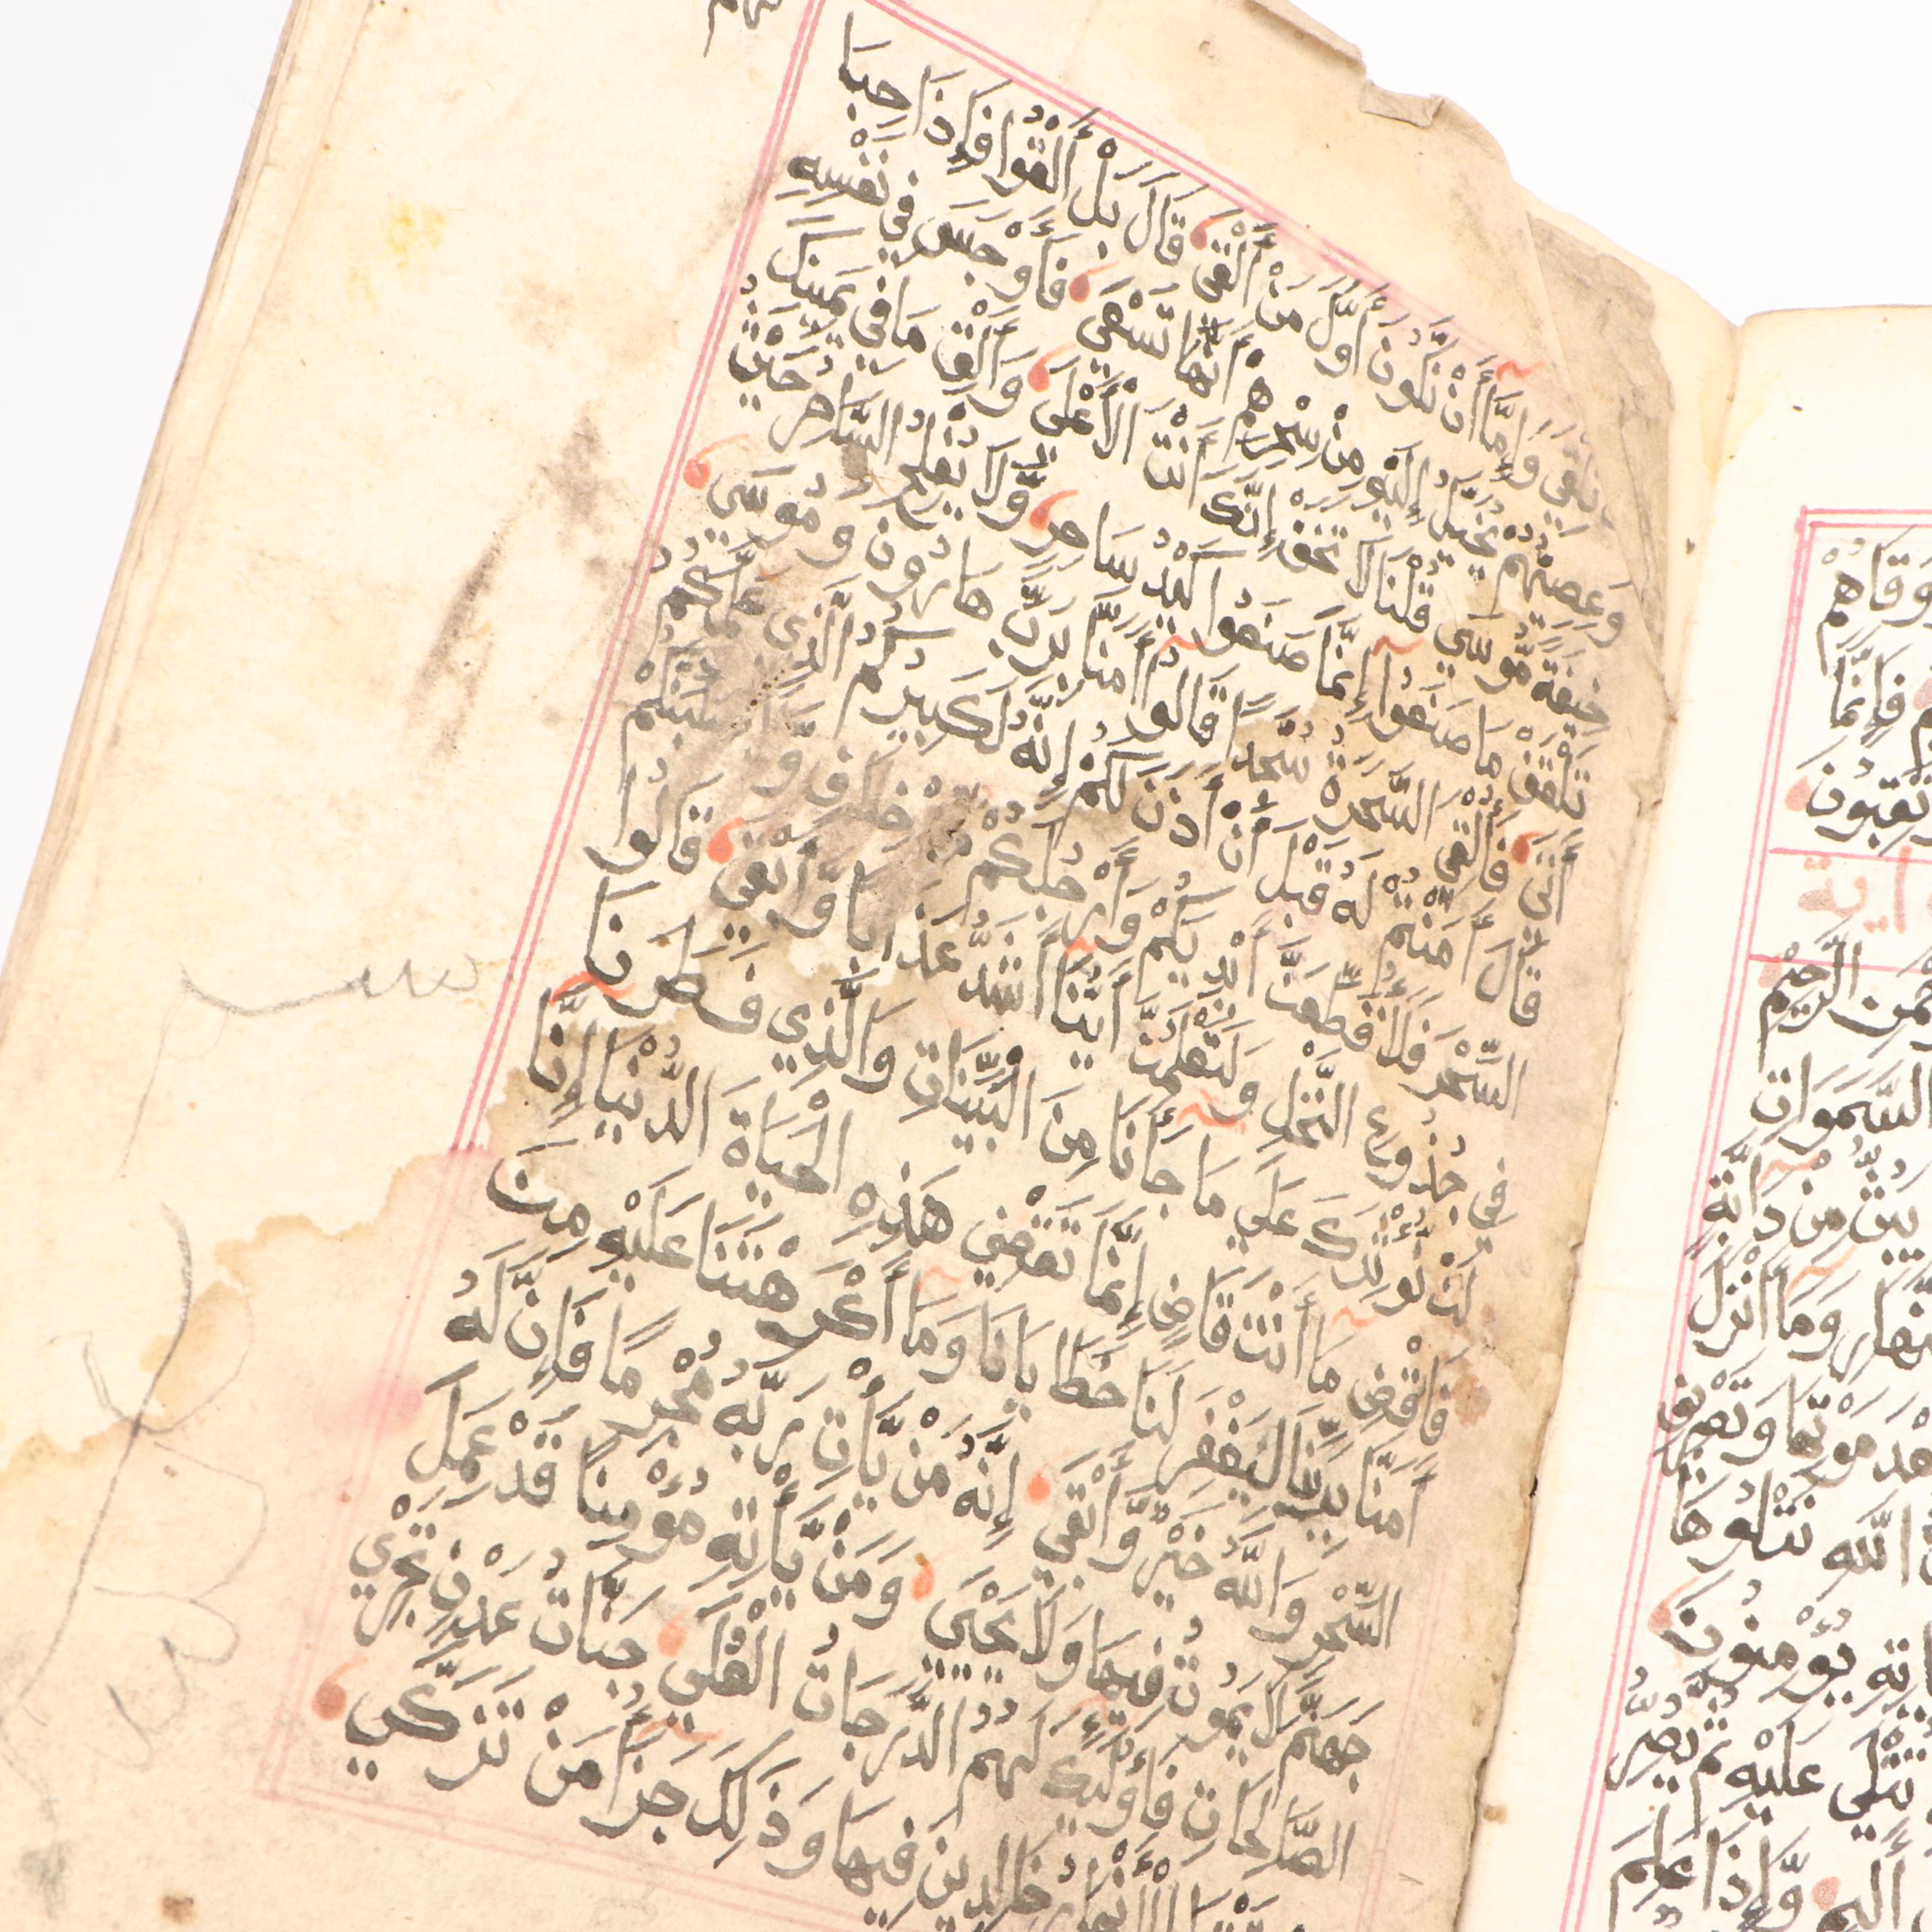 تُلْقِيَ وَإِمَّا أَنْ نَكُونَ أَوَّلَ مَنْ أَلْقَى قَالَ بَلْ أَلْقُوا فَإِذَا حِبَا
وَعِصِيُّهُمْ يُخَيَّلُ إِلَيْهِ مِنْ سِحْرِهِمْ أَنَّهَا تَسْعَى فَأَوْجَسَ فِي نَفْسِهِ
خِيفَةً مُوسَى قُلْنَا لَا تَخَفْ إِنَّكَ أَنْتَ الْأَعْلَى وَأَلْقِ مَا فِي يَمِينِكَ
تَلْقَفْ مَا صَنَعُوا إِنَّمَا صَنَعُوا كَيْدُ سَاحِرٍ وَلَا يُفْلِحُ السَّاحِرُ حَيْثُ
أَتَى فَأُلْقِيَ السَّحَرَةُ سُجَّدًا قَالُوا آمَنَّا بِرَبِّ هَارُونَ وَمُوسَى
قَالَ أَمَنْتُمْ لَهُ قَبْلَ أَنْ أَذَنَ لَكُمْ إِنَّهُ لَكَبِيرُكُمُ الَّذِي عَلَّمَكُمُ
السِّحْرَ فَلَأُقَطِّعَنَّ أَيْدِيَكُمْ وَأَرْجُلَكُمْ مِنْ خِلَافٍ وَلَأُصَلِّبَنَّكُمْ
فِي جُذُوعِ النَّخْلِ وَلَتَعْلَمُنَّ أَيُّنَا أَشَدُّ عَذَابًا وَأَبْقَى قَالُوا
لَنْ نُؤْثِرَكَ عَلَى مَا جَانَا مِنَ الْبَيِّنَاتِ وَالَّذِي فَطَرَنَا
فَاقْضِ مَا أَنْتَ قَاضٍ إِنَّمَا تَقْضِي هَذِهِ الْحَيَاةَ الدُّنْيَا إِنَّا
أَمَنَّا بِرَبِّنَا لِيَغْفِرَ لَنَا خَطَايَانَا وَمَا أَكْرَهْتَنَا عَلَيْهِ مِنَ
السِّحْرِ وَاللَّهُ خَيْرٌ وَأَبْقَى إِنَّهُ مَنْ يَأْتِ رَبَّهُ مُجْرِمًا فَإِنَّ لَهُ
جَهَنَّمَ لَا يَمُوتُ فِيهَا وَلَا يَحْيَى وَمَنْ يَأْتِهِ مُؤْمِنًا قَدْ عَمِلَ
الصَّالِحَاتِ فَأُولَئِكَ لَهُمُ الدَّرَجَاتُ الْعُلَى جَنَّاتُ عَدْنٍ تَجْرِي
الْأَنْهَارُ خَالِدِينَ فِيهَا وَذَلِكَ جَزَا مَنْ تَزَكَّى
وَقَاهُمْ
فَإِنَّمَا
اية
الرَّحِيمِ
السَّمَوَاتِ
يَبُثُّ مِنْ دَابَّةٍ
وَمَا أَنْزَلَ
مَوْتِهَا وَتَصْرِيفِ
اللَّهِ نَتْلُوهَا
يُؤْمِنُونَ
تُتْلَى عَلَيْهِ ثُمَّ يُصِرُّ
وَإِذَا عَلِمَ